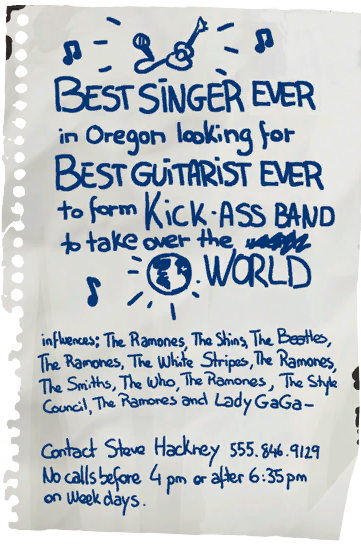 BEST SINGER EVER
in Oregon looking for
BEST GUITARIST EVER
to form KICK-ASS BAND
to take over the
WORLD
influences: The Ramones, The Shins, The Beatles,
The Ramones, The White Stripes, The Ramones,
The Smiths, The Who, The Ramones, The Style
Council, The Ramones and Lady GaGa-
Contact Steve Hackney 555.846.9129
No calls before 4 pm or after 6:35 pm
on weekdays.